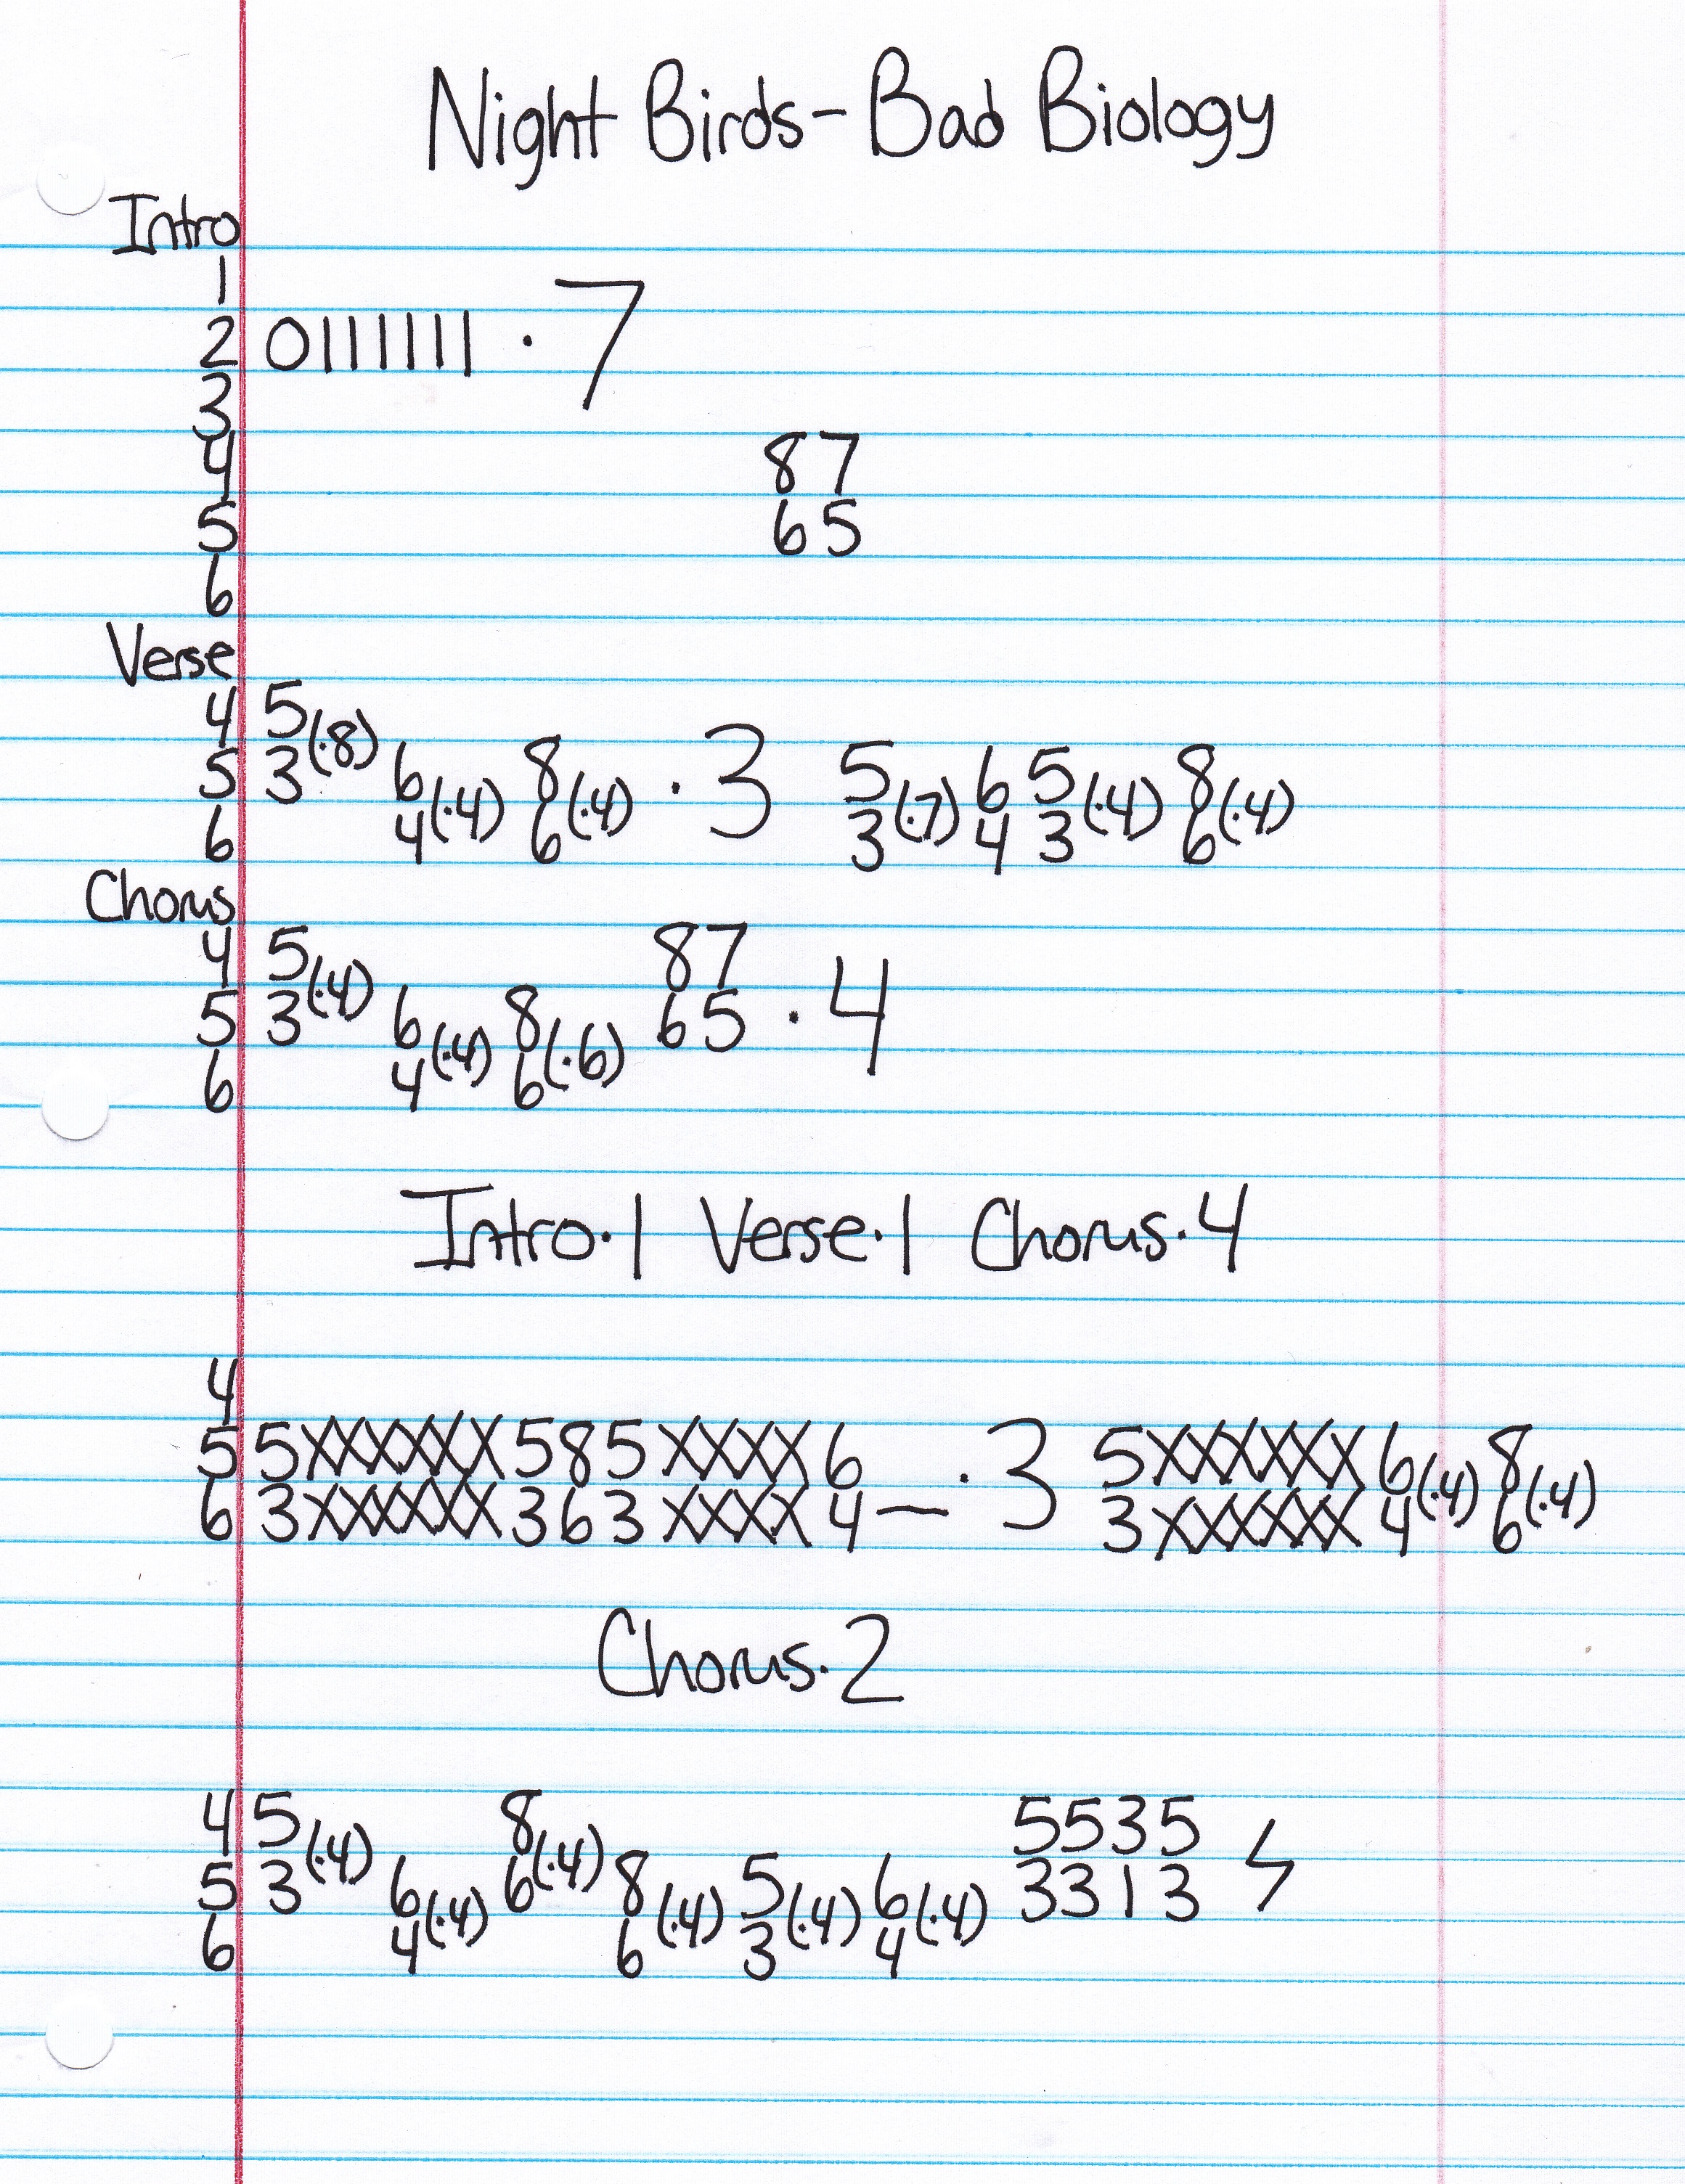 Night Birds - Bad Biology
Intro
1
2 0111111 · 7
3
4 87
5 65
6
Verse
4 5
5 3(·8) 6 8 · 3 5 6 5 8
6 4(·4) 6(·4) 3(·7) 4 3(·4) 6(·4)
Chorus
4 5 87
5 3(·4) 6 8 65 · 4
6 4(·4) 6(·6)
Intro·1 Verse·1 Chorus·4
4
5 5XXXXXX585XXXX6 · 3 5XXXXXX6 8
6 3XXXXXX363XXXX4— 3XXXXXX4(·4) 6(·4)
Chorus·2
4 5 8 5535
5 3(·4) 6 6(·4) 8 5 6 3313
6 4(·4) 6(·4) 3(·4) 4(·4)